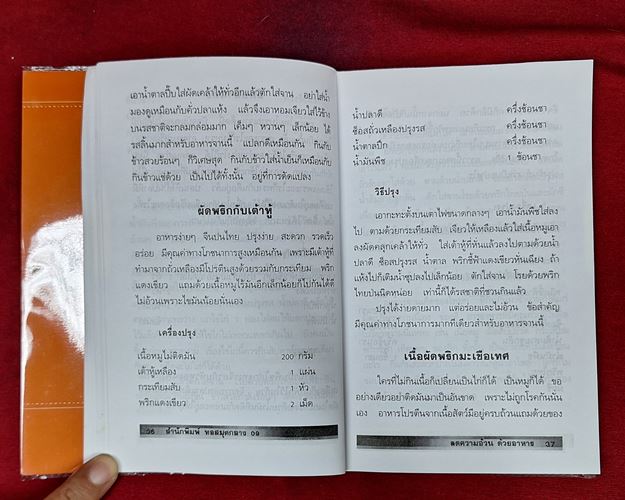 เอาน้ำตาลปี๊บใส่ผัดเคล้าให้ทั่วอีกแล้วตักใส่จาน อย่าใส่น้ำ
มองดูเหมือนกับคั่วปลาแห้ง แล้วจึงเอาหอมเจียวใส่ไว้ข้าง
บนรสชาติจะกลมกล่อมมาก เค็มๆ หวานๆ เล็กน้อย ได้
รสลิ้นมากสำหรับอาหารจานนี้ แปลกดีเหมือนกัน กินกับ
ข้าวสวยร้อนๆ ก็วิเศษสุด กินกับข้าวใส่น้ำเย็นก็เหมือนกับ
กินข้าวแช่ด้วย เป็นไปได้ทั้งนั้น อยู่ที่การดัดแปลง
ผัดพริกกับเต้าหู้
อาหารง่ายๆ จีนปนไทย ปรุงง่าย สะดวก รวดเร็ว
อร่อย มีคุณค่าทางโภชนาการสูงเหมือนกัน เพราะมีเต้าหู้ที่
ทำมาจากถั่วเหลืองมีโปรตีนสูงด้วยรวมกับกระเทียม พริก
แดงเขียว แถมด้วยเนื้อหมูไร้มันอีกเล็กน้อยก็ไปกันได้ดี
ไม่อ้วนเพราะไขมันน้อยนั่นเอง
เครื่องปรุง
เนื้อหมูไม่ติดมัน 200 กรัม
เต้าหู้เหลือง 1 แผ่น
กระเทียมสับ 1 หัว
พริกแดงเขียว 2 เม็ด
36 สำนักพิมพ์ หอสมุดกลาง 09
น้ำปลาดี ครึ่งช้อนชา
ซ๊อสถั่วเหลืองปรุงรส ครึ่งช้อนชา
น้ำตาลปีก ครึ่งช้อนชา
น้ำมันพืช 1 ช้อนชา
วิธีปรุง
เอากะทะตั้งบนเตาไฟขนาดกลางๆ เอาน้ำมันพืชใส่ลง
ไป ตามด้วยกระเทียมสับ เจียวให้เหลืองแล้วใส่เนื้อหมูเอา
ลงผัดคลุกเคล้าให้ทั่ว ใส่เต้าหู้ที่หั่นแล้วลงไปตามด้วยน้ำ
ปลาดี ซ๊อสปรุงรส น้ำตาล พริกชี้ฟ้าแดงเขียวหั่นเฉียง ถ้า
แห้งไปก็เติมน้ำซุปลงไปเล็กน้อย ตักใส่จาน โรยด้วยพริก
ไทยป่นนิดหน่อย เท่านี้ก็ได้รสชาติที่ชวนกินแล้ว
ปรุงได้ง่ายดายมาก แต่อร่อยและไม่อ้วน ข้อสำคัญ
มีคุณค่าทางโภชนาการมากทีเดียวสำหรับอาหารจานนี้
เนื้อผัดพริกมะเขือเทศ
ใครที่ไม่กินเนื้อก็เปลี่ยนเป็นไก่ก็ได้ เป็นหมูก็ได้ ขอ
อย่างเดียวอย่าติดมันมาเป็นอันขาด เพราะไม่ถูกโรคกันนั่น
เอง อาหารโปรตีนจากเนื้อสัตว์มีอยู่ครบถ้วนแถมด้วยของ
ลดความอ้วน ด้วยอาหาร 37